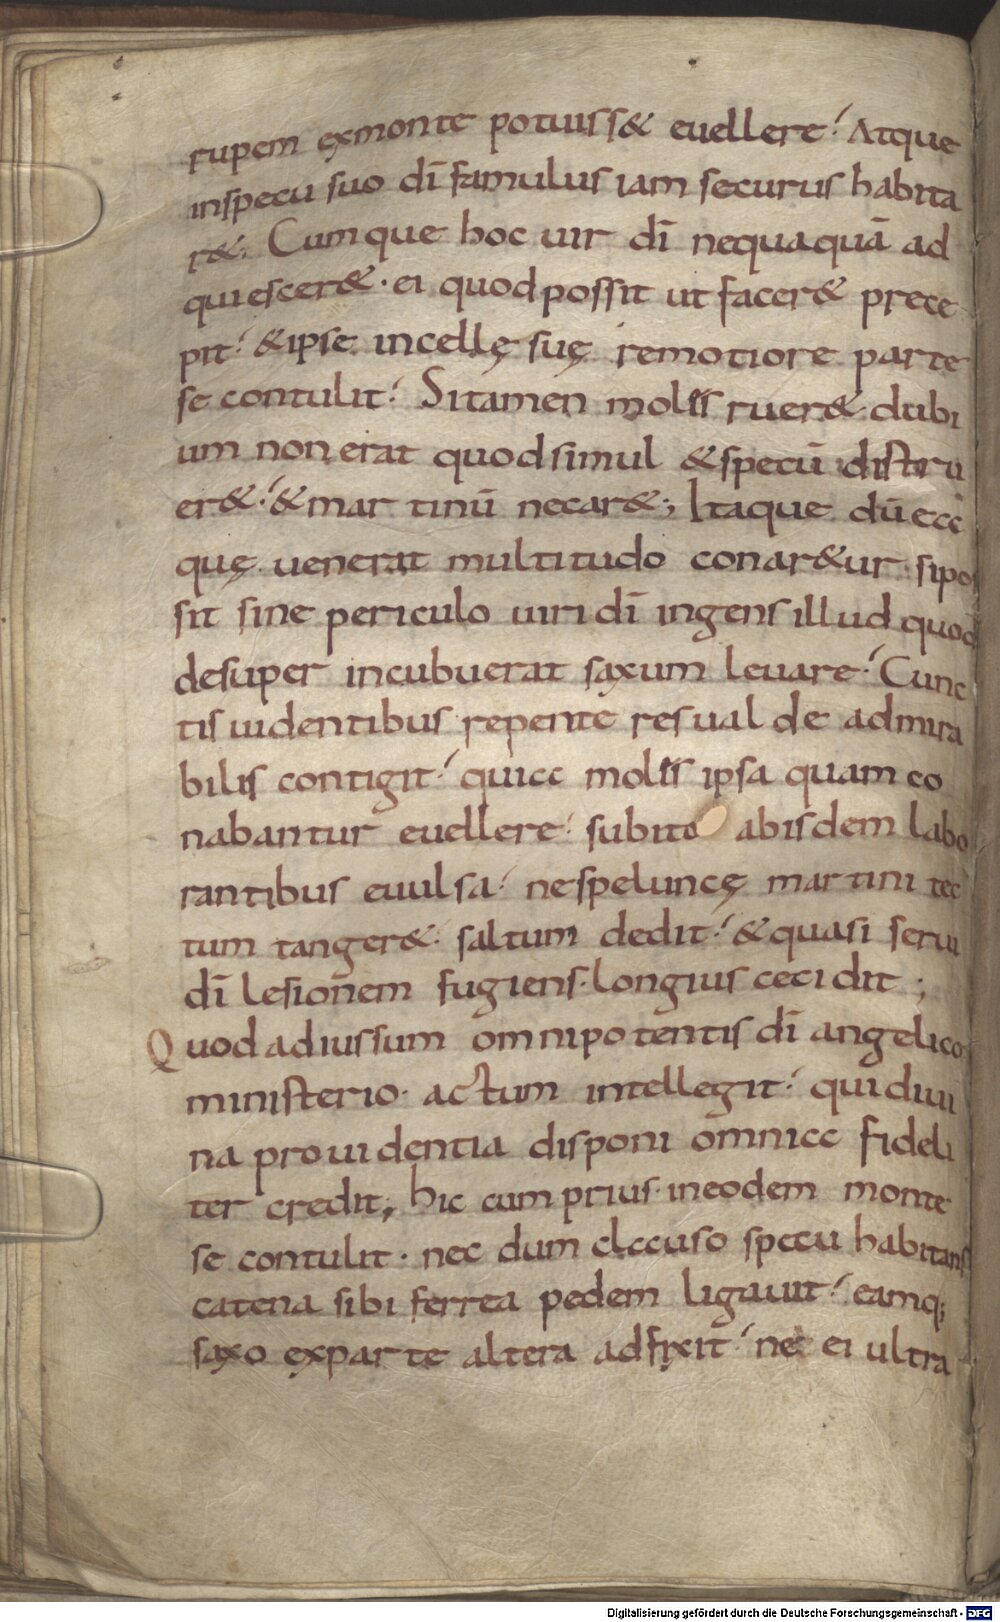 rupem exmonte potuiss& euellere; Atque
inspecu suo dī famulus iam securus habita
r&; Cumque hoc uir dī nequaquā ad
quiescer&· ei quod possit ut facer& prece
pit; &ipse incellę suę remotiore parte
se contulit; Sitamen molis ruer& dubi
um non erat quod simul &specū distru
er&; &mar tinū necar&; Itaque dū ecc
quę uenerat multitudo conar&ur sipos
sit sine periculo uiri dī ingens illud quod
desuper incubuerat saxum leuare; Cunc
tis uidentibus repente res ual de admira
bilis contigit; quicc molis ipsa quam co
nabantur euellere; subito abisdem labo
rantibus euulsa; ne speluncę martini tec
tum tanger&· saltum dedit; &quasi serui
dī lesionem fugiens· longius cecidit;
Quod adiussum omnipotentis dī angelico
ministerio· actum intellegit; qui diui
na prouidentia disponi omnicc fideli
ter credit; hic cum prius· ineodem monte
se contulit· nec dum clccuso specu habitans
catena sibi ferrea pedem ligauit; eamq;
saxo exparte altera adfixit; ne ei ultra
Digitalisierung gefördert durch die Deutsche Forschungsgemeinschaft - DFG